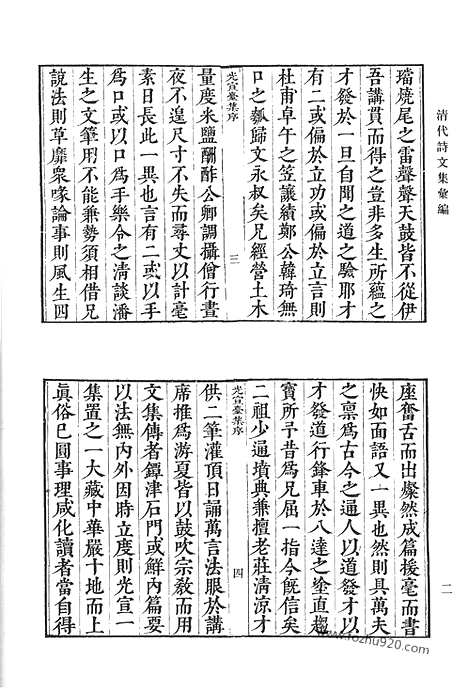 清代詩文集彙編
璫燒尾之雷聲聲天鼓皆不從伊
吾講貫而得之豈非多生所蘊之
才發於一旦自聞之道之驗耶才
有二或偏於立功或偏於立言則
杜甫卓午之笠讓續鄭公韓琦無
口之瓠歸文永叔矣兄經營土木
光宣臺集序
三
量度米鹽酬酢公卿調攝僧行晝
夜不遑尺寸不失而尋丈以計毫
素日長此一異也言有二或以手
爲口或以口爲手樂令之清談潘
生之文筆用不能兼勢須相借兄
說法則草靡衆喙論事則風生四
座奮舌而出粲然成篇援毫而書
快如面語又一異也然則具萬夫
之稟爲古今之通人以道發才以
才發道行鋒車於八達之塗直趨
寶所予昔爲兄屈一指今旣信矣
二祖少通墳典兼擅老莊清涼才
光宣臺集序
四
供二筆灌頂日誦萬言法眼於講
席推爲游夏皆以鼓吹宗教而用
文集傳者鐔津石門或鮮內篇要
以法無內外因時立度則光宣一
集置之一大藏中華嚴十地而上
眞俗已圓事理咸化讀者當自得
二
www.fozhu920.com